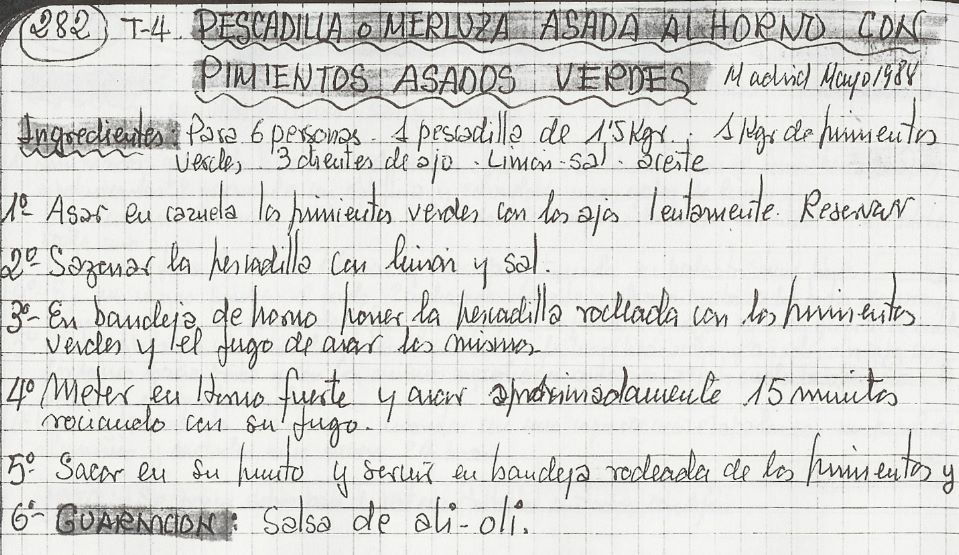 282 T-4 PESCADILLA o MERLUZA ASADA AL HORNO CON
PIMIENTOS ASADOS VERDES Madrid Mayo 1984
Ingredientes: Para 6 personas. 1 pescadilla de 1'5 Kgr. 1 Kgr de pimientos
verdes, 3 dientes de ajo. Limon-sal. aceite
1º- Asar en cazuela los pimientos verdes con los ajos lentamente. Reservar
2º- Sazonar la pescadilla con limon y sal.
3º- En bandeja de horno poner la pescadilla rodeada con los pimientos
verdes y el jugo de asar los mismos
4º Meter en Horno fuerte y asar aproximadamente 15 minutos
rociando con su jugo.
5º- Sacar en su punto y servir en bandeja rodeada de los pimientos y
6º- GUARNICION: Salsa de ali-oli.